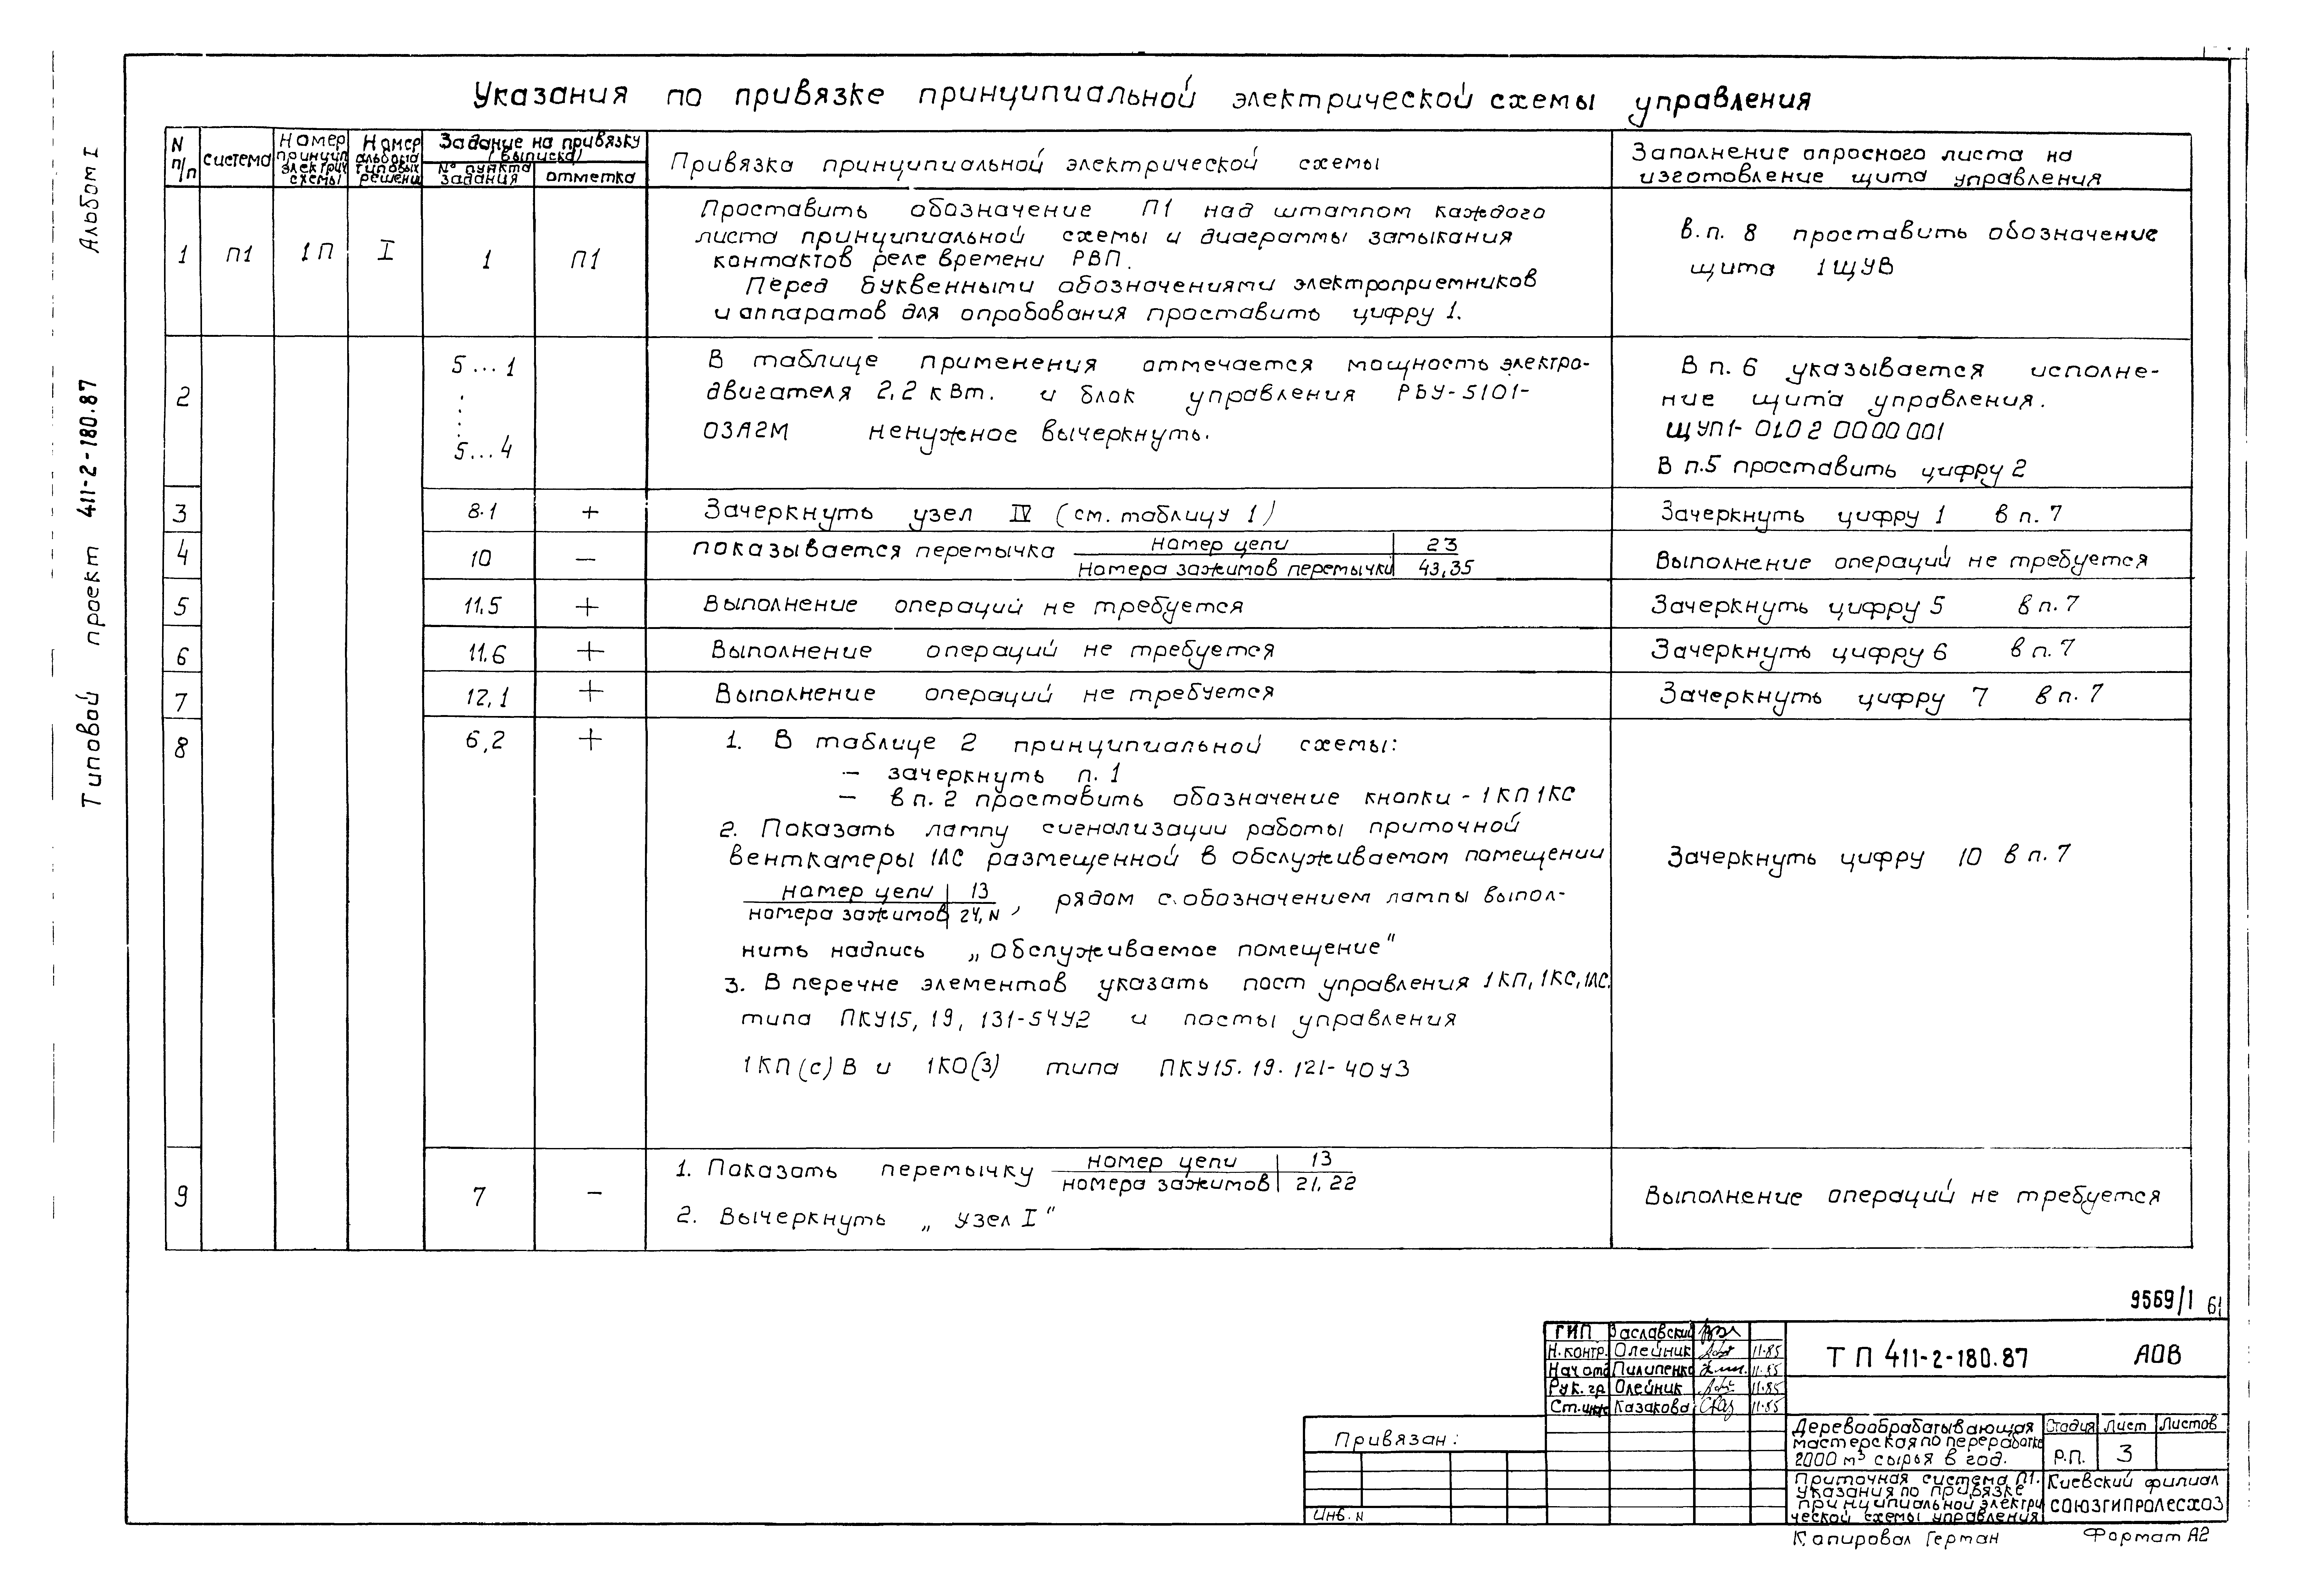 Указания по привязке принципиальной электрической схемы управления
N п/п
система
Номер принцип электрич схемы
Номер альбома типовых решений
Задание на привязку (выпуска)
N° пункта задания
отметка
Привязка принципиальной электрической схемы
Заполнение опросного листа на
изготовление щита управления
1 П1 1П I 1 П1
Проставить обозначение П1 над штампом каждого
листа принципиальной схемы и диаграммы замыкания
контактов реле времени РВП.
Перед буквенными обозначениями электроприемников
и аппаратов для опробования проставить цифру 1.
в.п. 8 проставить обозначение
щита 1ЩУВ
2
5...1
5...4
В таблице применения отмечается мощность электро-
двигателя 2,2 кВт. и блок управления РБУ-5101-
03А2М ненужное вычеркнуть.
В п. 6 указывается исполне-
ние щита управления.
ЩУП1-0102 0000 001
В п.5 проставить цифру 2
3 8.1 + Зачеркнуть узел IV (см. таблицу 1) Зачеркнуть цифру 1 в п. 7
4 10 — показывается перемычка номер цепи 23
Номера зажимов перемычки 43,35
Выполнение операций не требуется
5 11.5 + Выполнение операций не требуется Зачеркнуть цифру 5 в п. 7
6 11.6 + Выполнение операций не требуется Зачеркнуть цифру 6 в п. 7
7 12,1 + Выполнение операций не требуется Зачеркнуть цифру 7 в п. 7
8 6,2 + 1. В таблице 2 принципиальной схемы:
— зачеркнуть п. 1
— в п. 2 проставить обозначение кнопки - 1КП1КС
2. Показать лампу сигнализации работы приточной
венткамеры 1ЛС размещенной в обслуживаемом помещении
номер цепи 13
номера зажимов 24, N, рядом с обозначением лампы выпол-
нить надпись „Обслуживаемое помещение"
3. В перечне элементов указать пост управления 1КП, 1КС, 1ЛС.
типа ПКУ15, 19, 131-54У2 и посты управления
1КП(с)В и 1КО(З) типа ПКУ15.19.121-40У3
Зачеркнуть цифру 10 в п. 7
9 7 — 1. Показать перемычку номер цепи 13
номера зажимов 21, 22
2. Вычеркнуть „узел I"
Выполнение операций не требуется
Альбом I
Типовой проект 411-2-180.87
9569/1 61
ГИП Заславский
Н.контр. Олейник 11.85
Нач отд Пилипенко 11.85
Рук. гр Олейник 11.85
Ст.инж Казакова 11.85
ТП 411-2-180.87 АОВ
Привязан:
Инв. N
Деревообрабатывающая
мастерская по переработке
2000 м³ сырья в год.
Стадия Лист Листов
Р.П. 3
Приточная система П1.
Указания по привязке
принципиальной электри
ческой схемы управления
Киевский филиал
СОЮЗГИПРОЛЕСХОЗ
Копировал Герман Формат А2